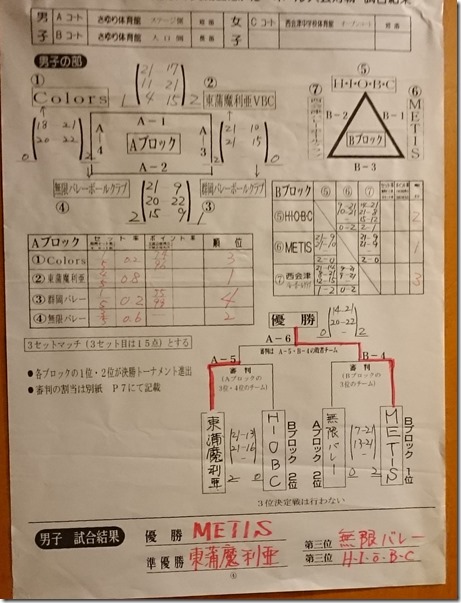 試合結果
男子 Aコート さゆり体育館 ステージ側
Bコート さゆり体育館 入口側
女子 Cコート 西会津中学校体育館
男子の部
① Colors
21 17
11 21
4 15
1 2
② 東蒲魔利亜VBC
A-1
A-4
Aブロック
A-3
A-2
18 21
20 22
0 2
21 10
21 15
2 0
無限バレーボールクラブ
④
21 9
20 22
15 9
2 1
群岡バレークラブ
③
⑤
H・I・O・B・C
⑦
⑥ METIS
B-2 B-1
Bブロック
B-3
Aブロック セット率 ポイント率 順位
①Colors 0.2 3
②東蒲魔利亜 0.8 1
③群岡バレー 0.2 4
④無限バレー 0.6 2
Bブロック ⑤ ⑥ ⑦
⑤HIOBC 2
0-2 2-1
⑥METIS 21-9 21-10 21-9 21-9 1
2-0 2-0
⑦西会津 3
1-2 0-2
3セットマッチ(3セット目は15点)とする
●各ブロックの1位・2位が決勝トーナメント進出
●審判の割当は別紙 P7にて記載
優勝
14-21
20-22
0 2
A-6
審判は A-5・B-4の敗者チーム
A-5
B-4
審判
(Aブロックの3位・4位のチーム)
審判
(Bブロックの3位のチーム)
東蒲魔利亜
21-13
21-16
2 0
HIOBC
Bブロック 2位
Aブロック 2位
無限バレー
17-21
13-21
0 2
METIS
Bブロック 1位
3位決定戦は行わない
男子 試合結果
優勝 METIS
準優勝 東蒲魔利亜
第三位 無限バレー
第三位 H・I・O・B・C